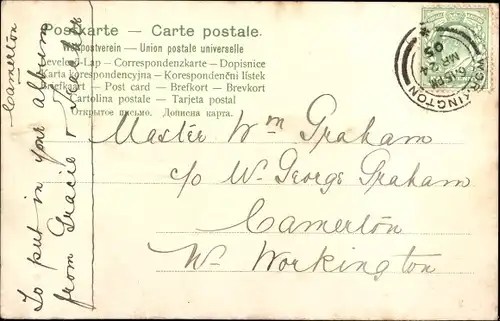 Postkarte — Carte postale.
Weltpostverein — Union postale universelle
Levelező-Lap — Correspondenzkarte — Dopisnice
Karta korespondencyjna — Korespondenční lístek
Briefkaart — Post card — Brefkort — Brevkort
Cartolina postale — Tarjeta postal
Открытое письмо. Дописна карта.
WORKINGTON
6.15 PM
MR 24
05
Master Wm Graham
c/o W. George Graham
Camerton
Nr. Workington
Camerton
To put in your album
from Gracie &